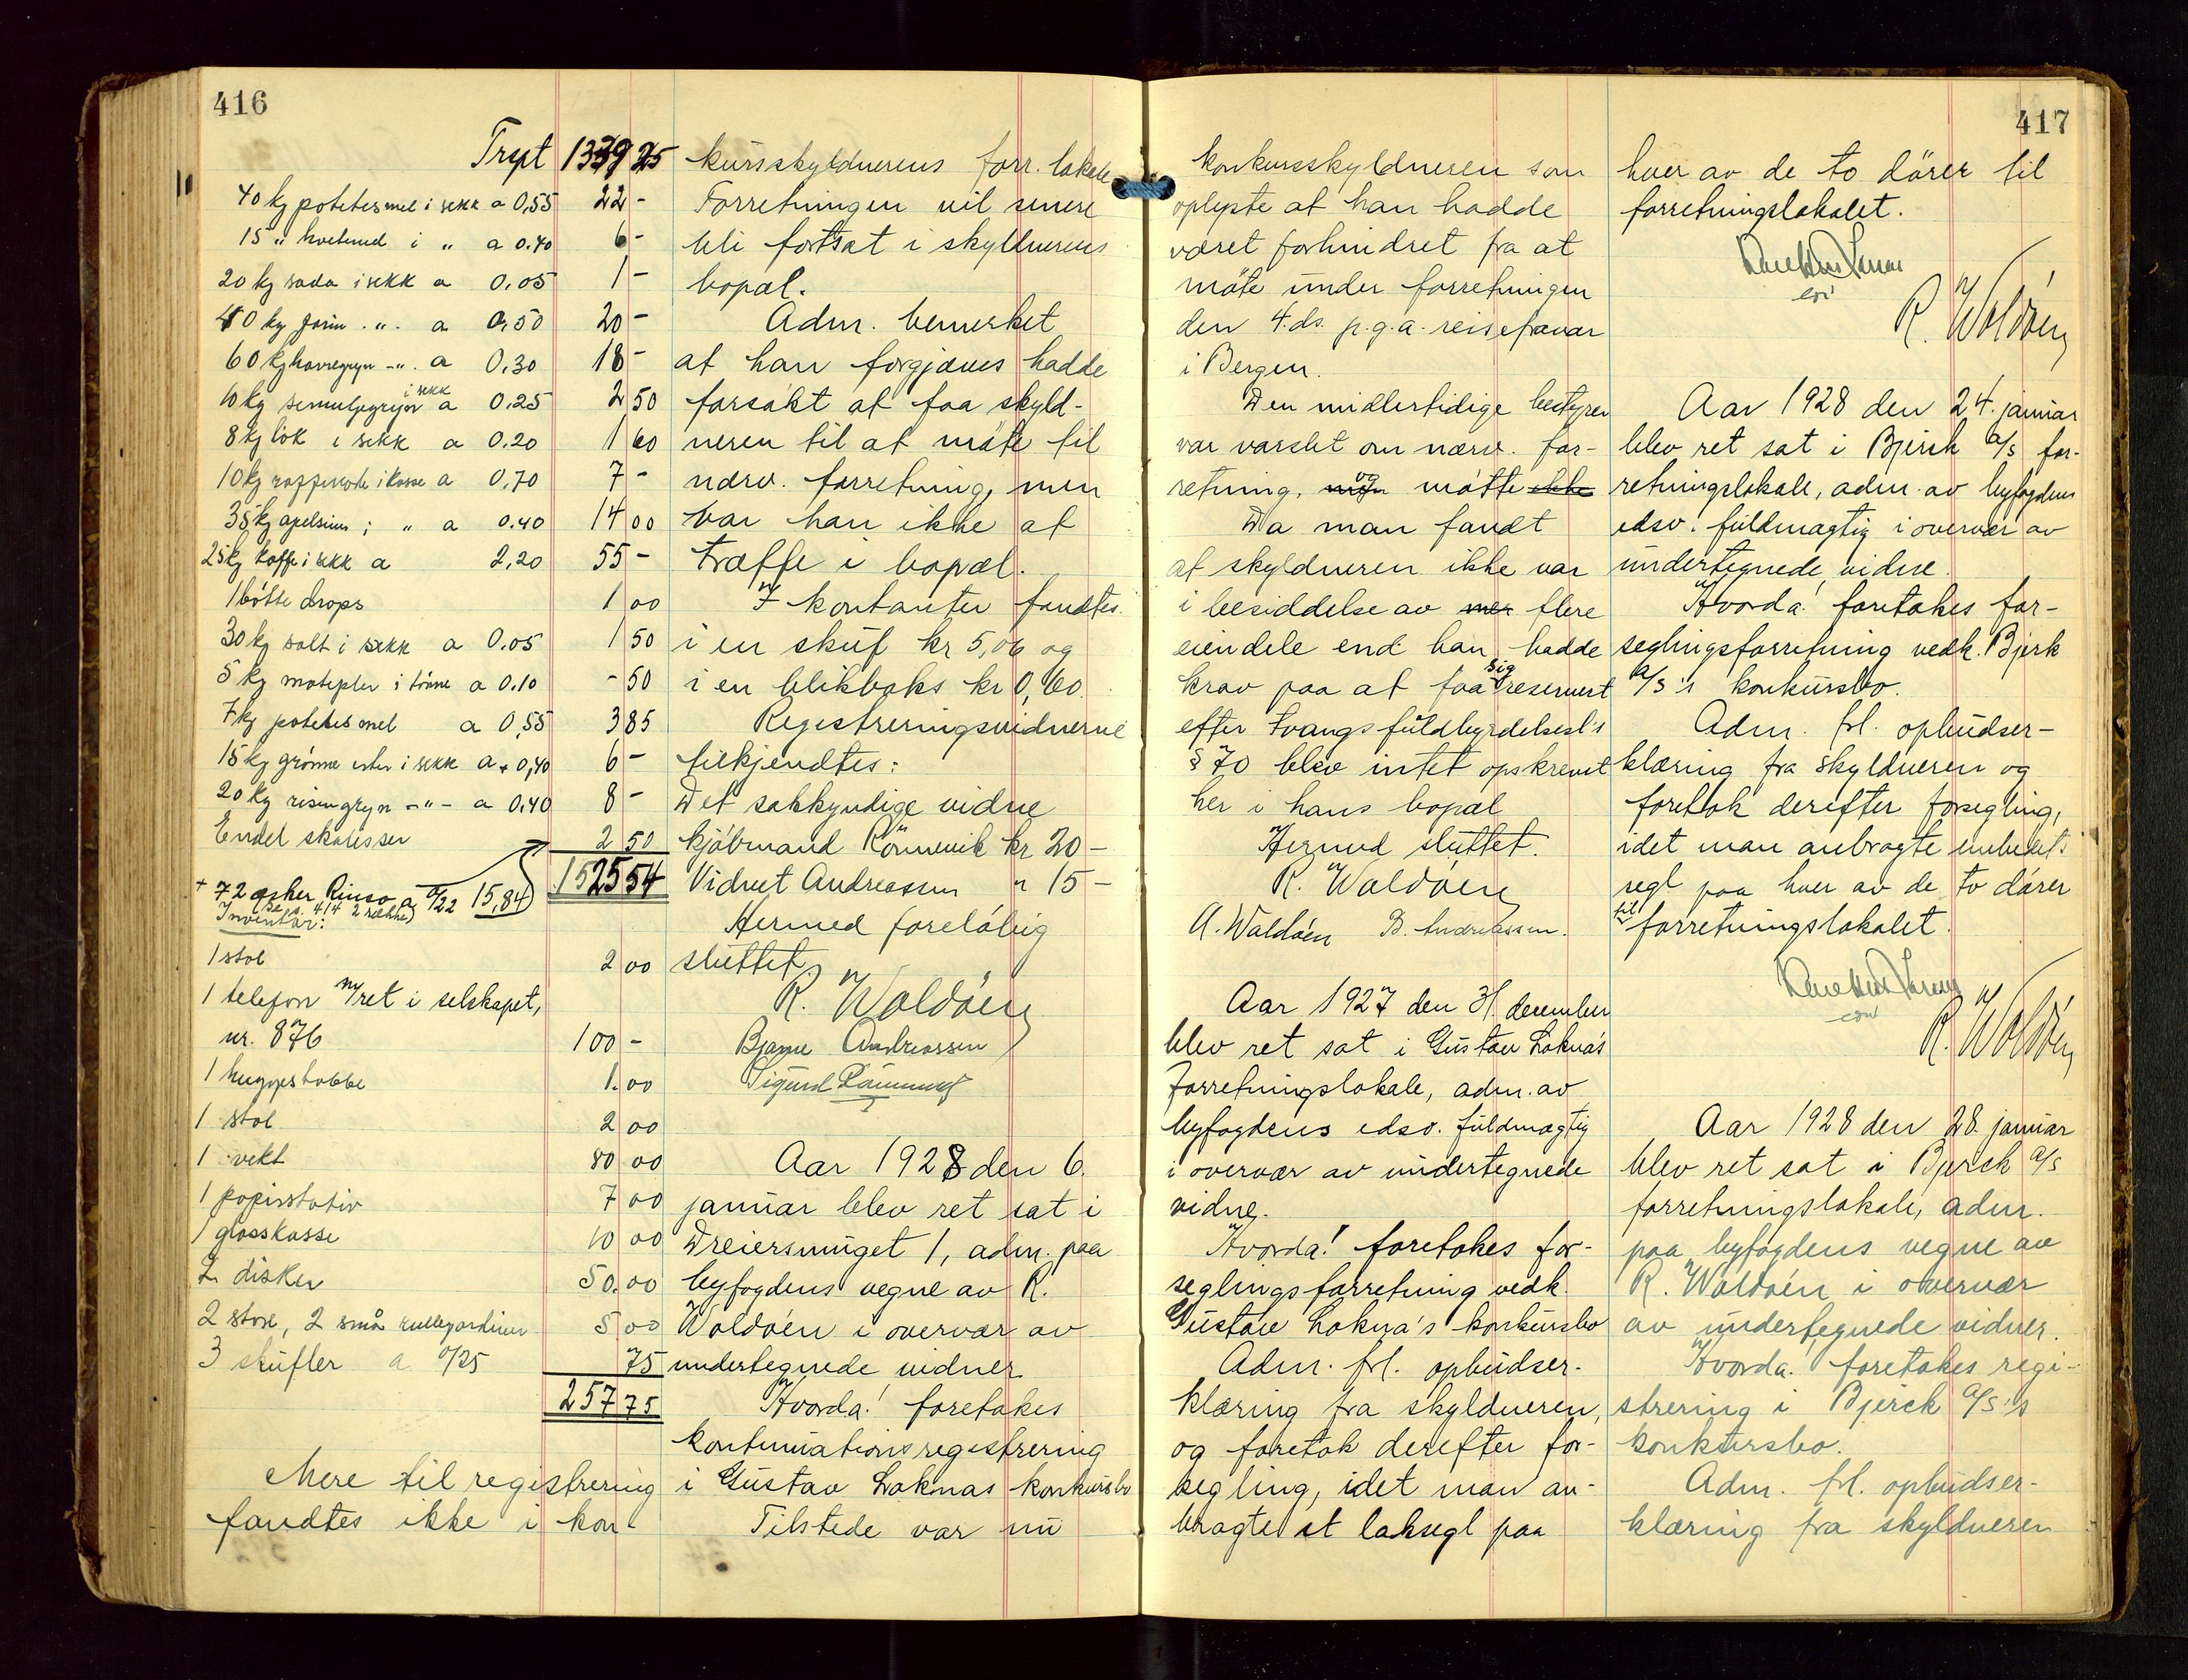 416
Trpt 1339 25
40 kg potetesmel i sekk a 0,55 22 -
15 " hvetemel i " a 0.40 6 -
20 kg soda i sekk a 0.05 1 -
40 kg farin . " . a 0,50 20 -
60 kg havregryn - " . a 0,30 18 -
10 kg semulegryn i sekk a 0.25 2 50
8 kg lök i sekk a 0.20 1 60
10 kg i kasse a 0,70 7 -
35 kg apelsiner i " a 0.40 14 00
25 kg kaffe i sekk a 2,20 55 -
1 bötte drops 1 00
30 kg salt i sekk a 0.05 1 50
5 kg matepler i tönne a 0.10 - 50
7 kg potetesmel a 0,55 3 85
15 kg grönne erter i sekk a 0,40 6 -
20 kg risengryn - " - a 0.40 8 -
Endel skolisser 2 50
1525 54
+ 72 æsker Rinso a 0/22 15,84
(se s. 414 2 rekke)
Inventar:
1 stol 2 00
1 telefon m/ret i selskapet,
nr. 876 100 -
1 huggestabbe 1.00
1 stol 2 00
1 vekt 80 00
1 papirstativ 7 00
1 glasskasse 10 00
2 disker 50.00
2 store, 2 små rullegardiner 5 00
3 skufler a 0/25 75
257 75
Mere til registrering
fandtes ikke i kon-
kursskyldnerens forr. lokale
Forretningen vil senere
bli fortsat i skyldnerens
bopæl.
Adm. bemerket
at han forgjæves hadde
forsökt at faa skyld-
neren til at möte til
nærv. forretning, men
var han ikke at
træffe i bopæl.
I kontanter fandtes
i en skuf kr 5,06 og
i en blikboks kr 0,60.
Registreringsvidnerne
tilkjendtes:
Det sakkyndige vidne
kjöbmand Rönnevik kr 20 -
Vidnet Andreassen " 15 -
Hermed foreløbig
sluttet
R. Waldöen
Bjarne Andreassen
Sigurd Rönnevik
Aar 1928 den 6.
januar blev ret sat i
Dreiersmuget 1, adm. paa
byfogdens vegne av R.
Waldöen i overvær av
undertegnede vidner
Hvorda! foretokes
kontinuationsregistrering
i Gustav Loknas konkursbo
Tilstede var nu
417
konkursskyldneren som
oplyste at han hadde
været forhindret fra at
möte under forretningen
den 4. ds. p.g.a. reisefravær
i Bergen.
Den midlertidige bestyrer
var varslet om nærv. for-
retning, og mötte ikke
Da man fandt
at skyldneren ikke var
i besiddelse av mer flere
eiendele end han hadde
krav paa at faa sig reservert
efter tvangsfuldbyrdelsesl's
§ 70 blev intet opskrevet
her i hans bopæl
Hermed sluttet.
R. Waldöen
A. Waldöen B. Andreassen.
Aar 1927 den 31 december
blev ret sat i Gustav Lokna's
forretningslokale, adm. av
byfogdens edsv. fuldmægtig
i overvær av undertegnede
vidne.
Hvorda! foretokes for-
seglingsforretning vedk.
Gustav Lokna's konkursbo
Adm. frl. opbudser-
klæring fra skyldneren,
og foretok derefter for-
segling, idet man an-
bragte et laksegl paa
hver av de to dörer til
forretningslokalet.
R. Waldöen
Aar 1928 den 24. januar
blev ret sat i Bjerck A/S for-
retningslokale, adm. av byfogdens
edsv. fuldmægtig i overvær av
undertegnede vidne.
Hvorda! foretokes for-
seglingsforretning vedk. Bjerk
A/S's konkursbo.
Adm. frl. opbudser-
klæring fra skyldneren og
foretok derefter forsegling,
idet man anbragte embedets
segl paa hver av de to dörer
til forretningslokalet.
R. Waldöen
Aar 1928 den 28. januar
blev ret sat i Bjerck A/S
forretningslokale, adm.
paa byfogdens vegne av
R. Waldöen i overvær
av undertegnede vidner.
Hvorda! foretokes regi-
strering i Bjerck A/S's
konkursbo.
Adm. frl. opbudser-
klæring fra skyldneren